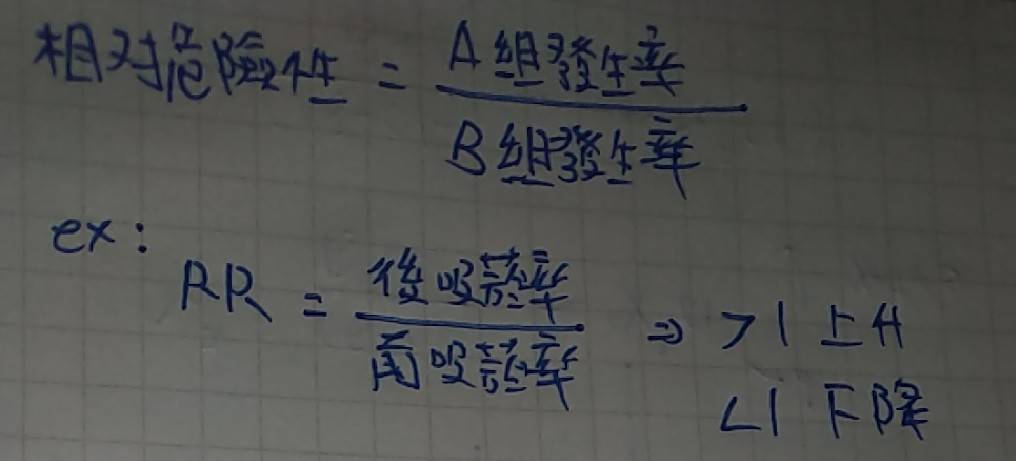 相对危險性 = A組發生率 / B組發生率
ex:
RR = 後吸菸率 / 前吸菸率 ⇒ >1 上升
<1 下降